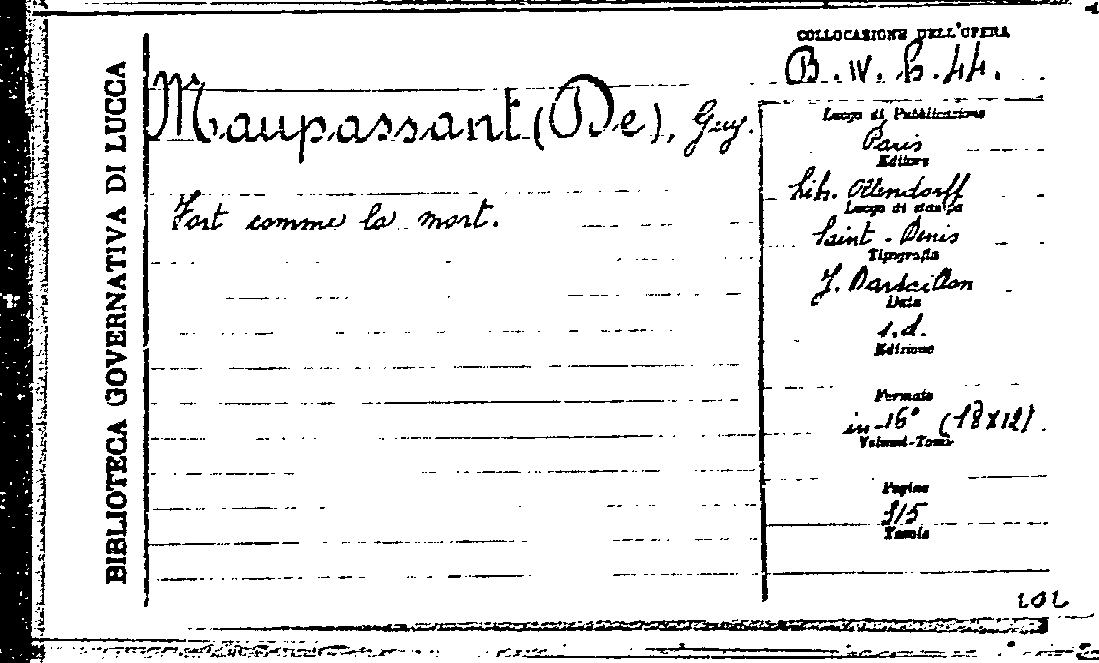 BIBLIOTECA GOVERNATIVA DI LUCCA
COLLOCAZIONE DELL'OPERA
B. IV. b. 44.
Maupassant (De), Guy.
Fort comme la mort.
Luogo di Pubblicazione
Paris
Editore
Lib. Ollendorff
Luogo di stampa
Saint-Denis
Tipografia
J. Dardaillon
Data
s.d.
Edizione
Formato
in-16° (18x12).
Volumi-Tomi
Pagine
Tavole